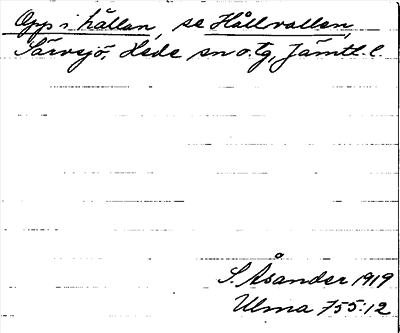 Opp i hållan, se Hållvallen,
Särvsjö, Hede sn o. tg, Jämtl. l.
S. Åsander 1919
Ulma 755:12